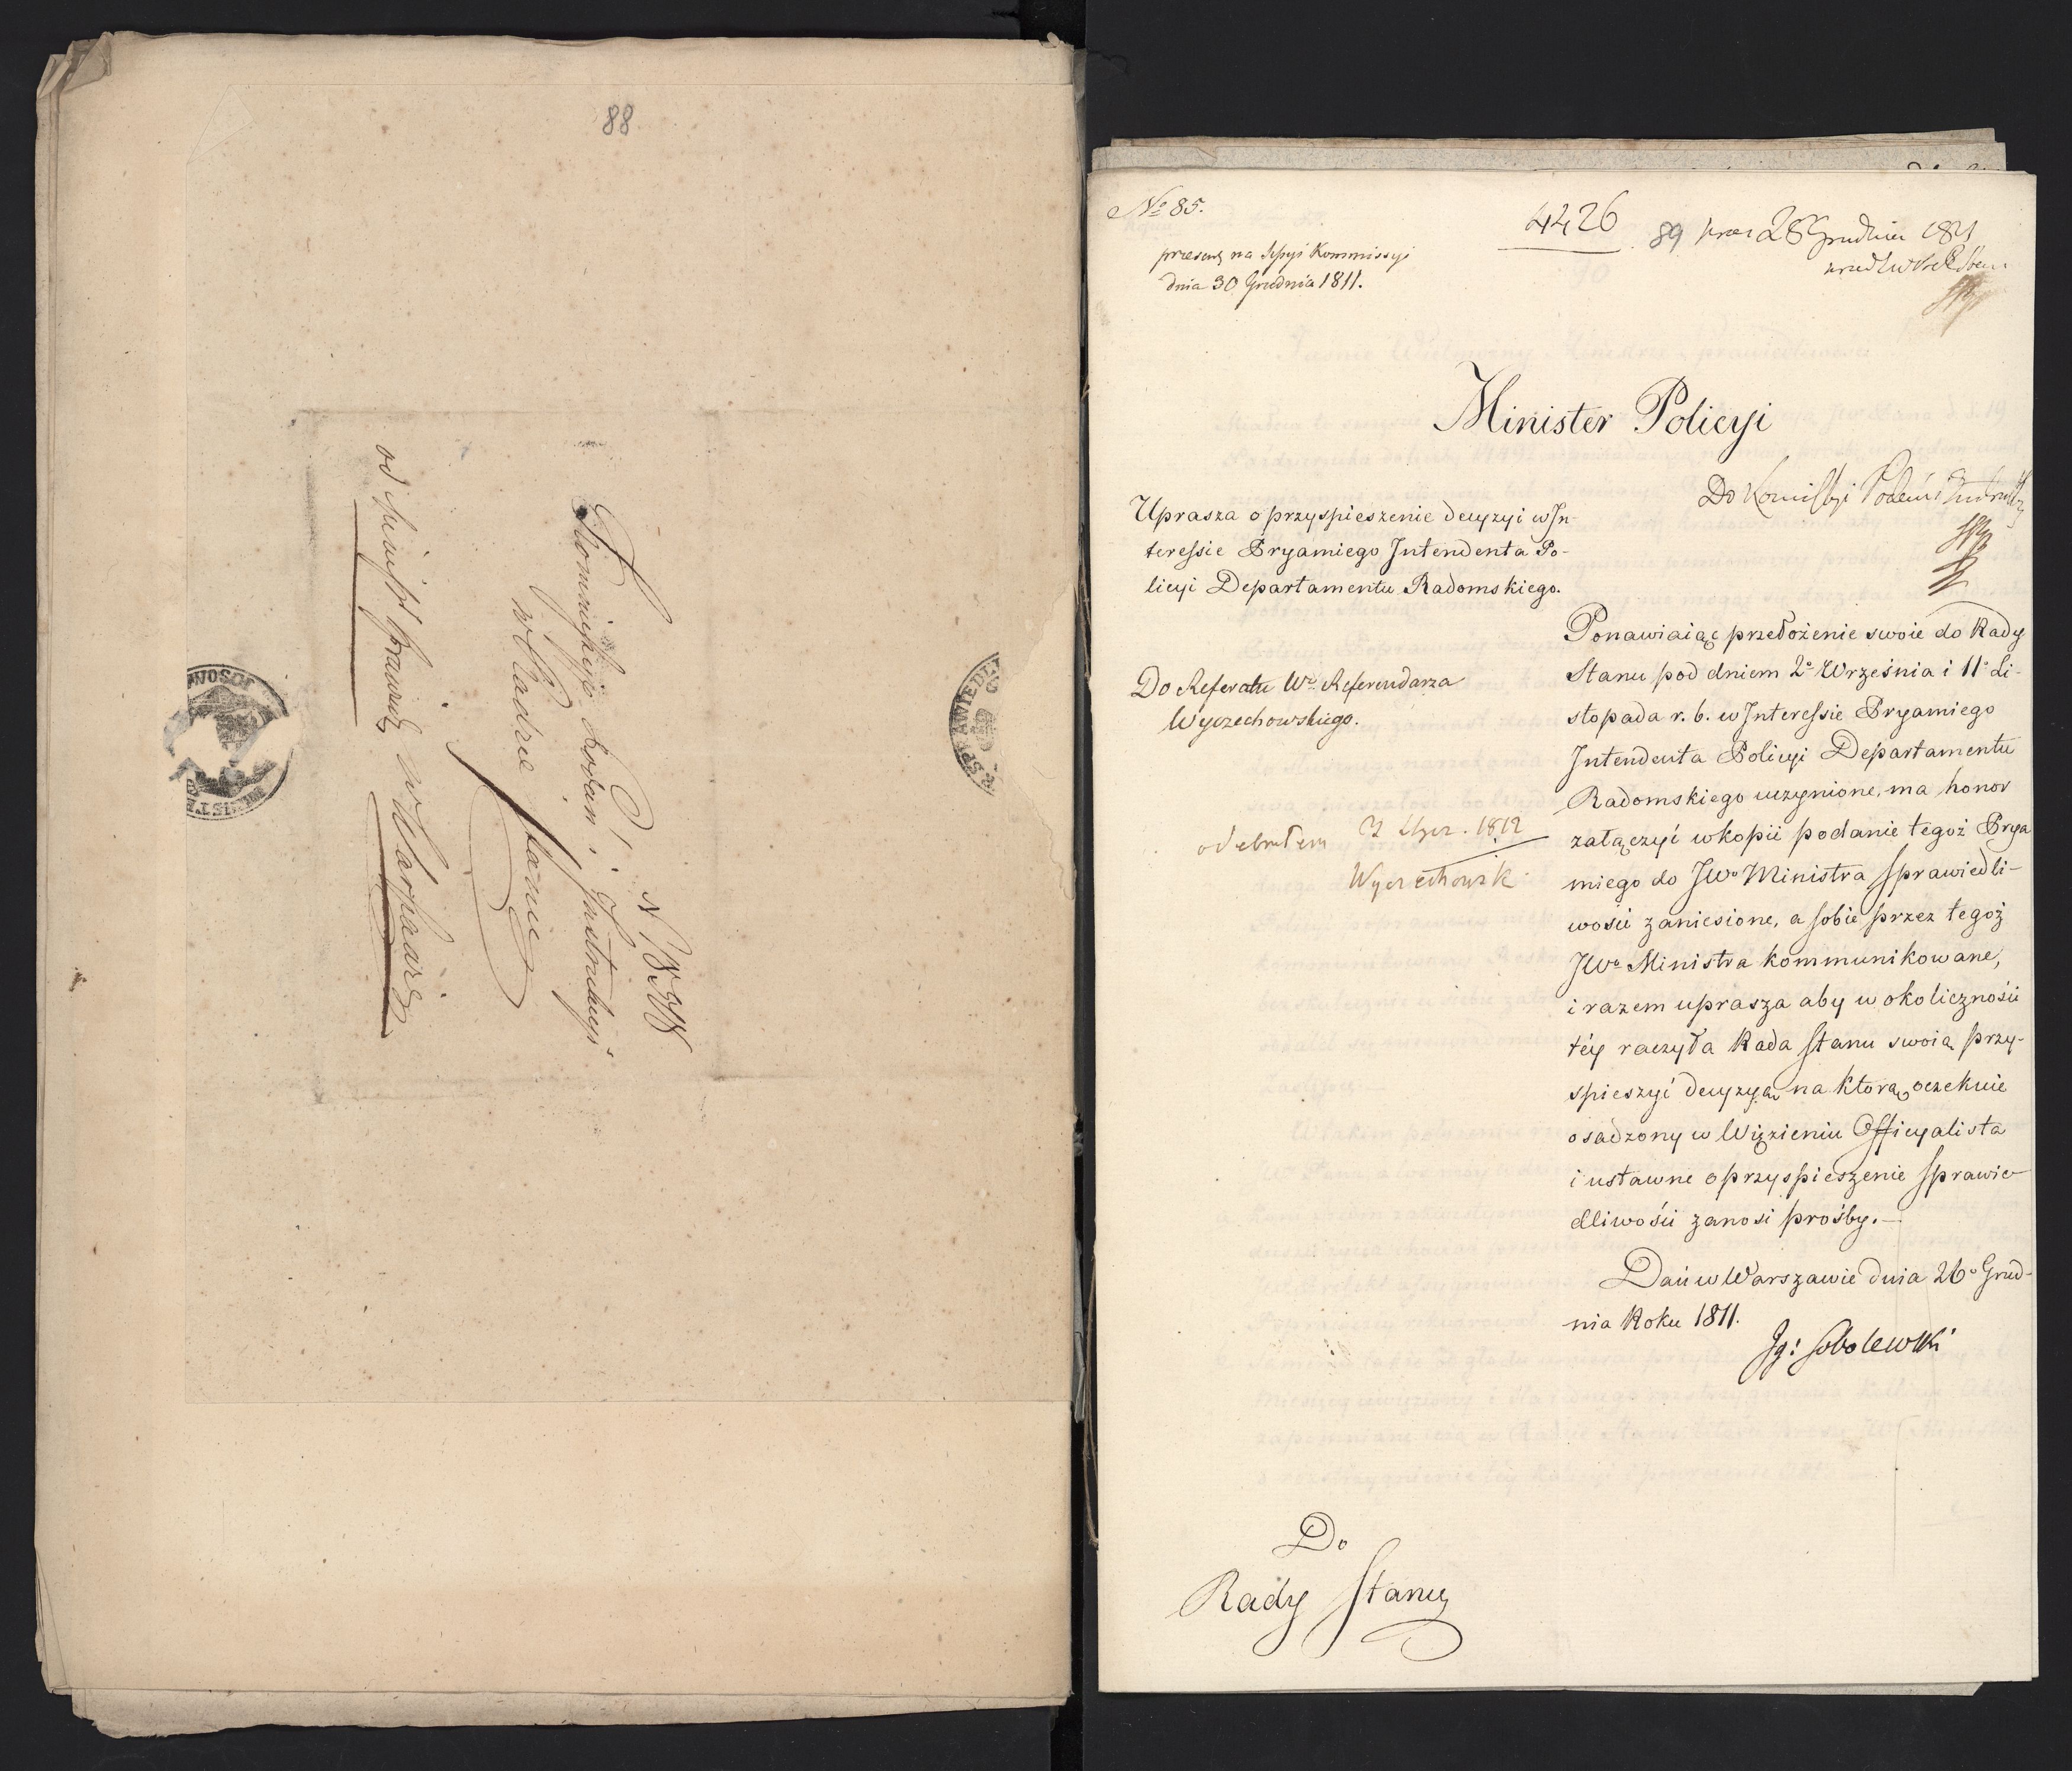 88
N 85
Kommissyi Podań i Instrukcyi
w Radzie Stanu
od Minist Sprawied w Warszawie
WOSCI
MINISTER
SPRAWIEDLI
№ 85.
4426
89 28 Grudnia 1811
przesent na Sessyi Kommissyi
dnia 30 Grudnia 1811.
Minister Policyi
Do Komissyi Podań i Instrukcyi
Uprasza o przyspieszenie decyzyi w In-
teressie Bryamiego Intendenta Po-
licyi Departamentu Radomskiego.
Do Referatu Wo Referendarza
Wyczechowskiego.
odebrałem 7 Stycz. 1812
Wyczechowsk
Ponawiaiąc przełożenie swoie do Rady
Stanu pod dniem 2o Września i 11o Li-
stopada r. b. w Interessie Bryamiego
Intendenta Policyi Departamentu
Radomskiego uczynione, ma honor
załączyć w kopii podanie tegoż Brya
miego do JWo Ministra Sprawiedli-
wości zaniesione, a sobie przez tegoż
JWo Ministra kommunikowane,
i razem uprasza aby w okoliczności
téy raczyła Rada Stanu swoią przy-
spieszyć decyzyą na ktorą oczekuie
osadzony w Więzieniu Officyalista
i ustawne o przyspieszenie Sprawie-
dliwości zanosi prośby.—
Dań w Warszawie dnia 26o Grud-
nia Roku 1811.
Ig: Sobolewski
Do
Rady Stanu